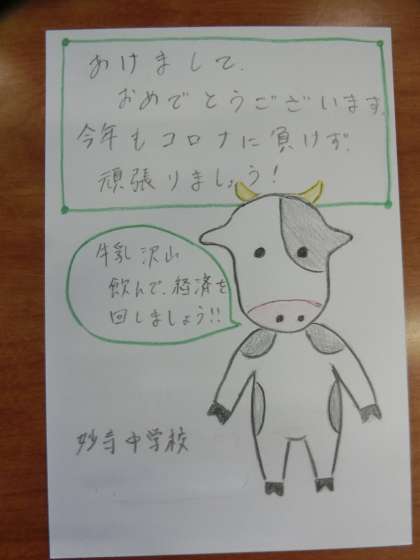 あけまして、
おめでとうございます。
今年もコロナに負けず、
頑張りましょう!
牛乳沢山
飲んで、経済を
回しましょう!!
妙寺中学校